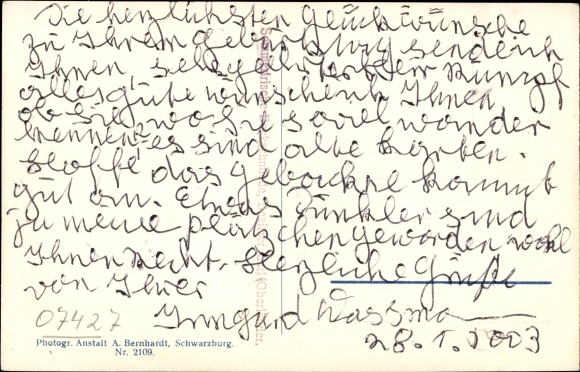 Die herzlichsten Glückwünsche
zu Ihrem Geburtstag sende ich
Ihnen,
alles gute wünschend Ihnen
ob Sie wo Sie soviel wandern
kennen? es sind alte Karten.
Hoffe das Gebackne kommt
gut an. Etwas dunkler sind
ja meine Plätzchen geworden wohl
Ihnen recht. Herzliche Grüße
von Ihrer
Irmgard Wassma
28. 1. 2003
07427
Photogr. Anstalt A. Bernhardt, Schwarzburg.
Nr. 2109.